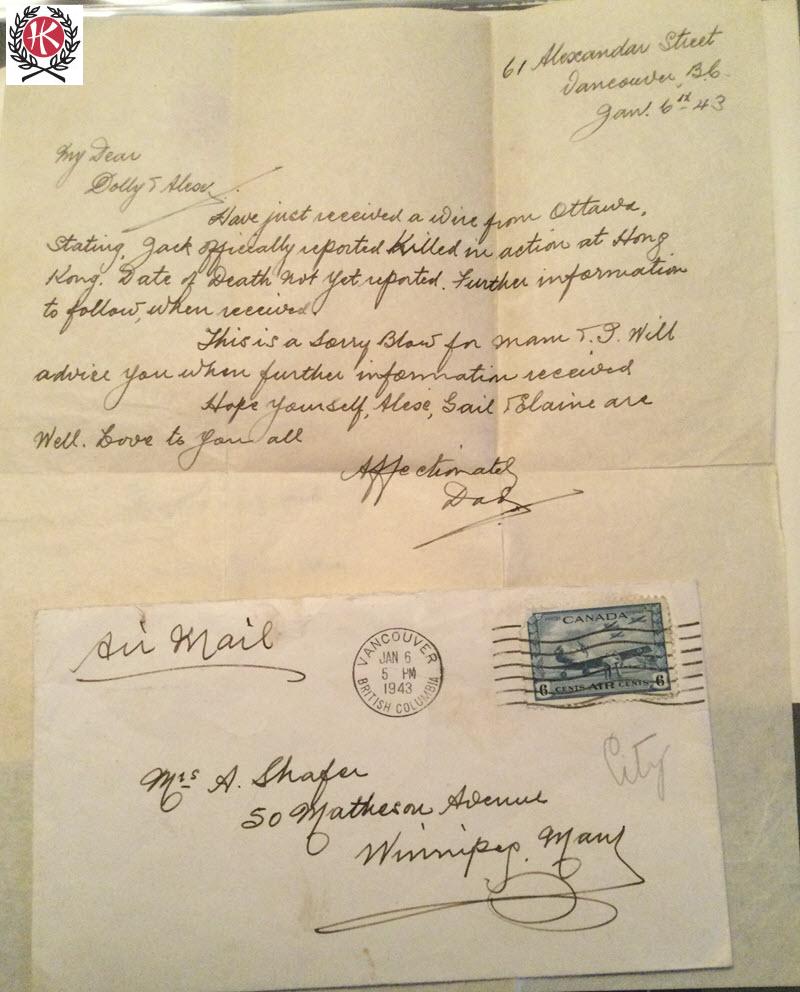 HK
61 Alexandar Street
Vancouver, B.C.
Jan. 6th 43
My Dear
Dolly & Alex,
Have just received a wire from Ottawa,
Stating, Jack officially reported Killed in action at Hong
Kong. Date of Death Not Yet reported. Further information
to follow, when received.
This is a Sorry Blow for Mam & I. Will
advice you when further information received
Hope Yourself, Alex, Gail & Elaine are
Well. Love to You all
Affectionately
Dad
Air Mail
VANCOUVER
JAN 6
5 PM
1943
BRITISH COLUMBIA
CANADA
6 CENTS AIR CENTS 6
City
Mrs A. Shafer
50 Matheson Avenue
Winnipeg, Man